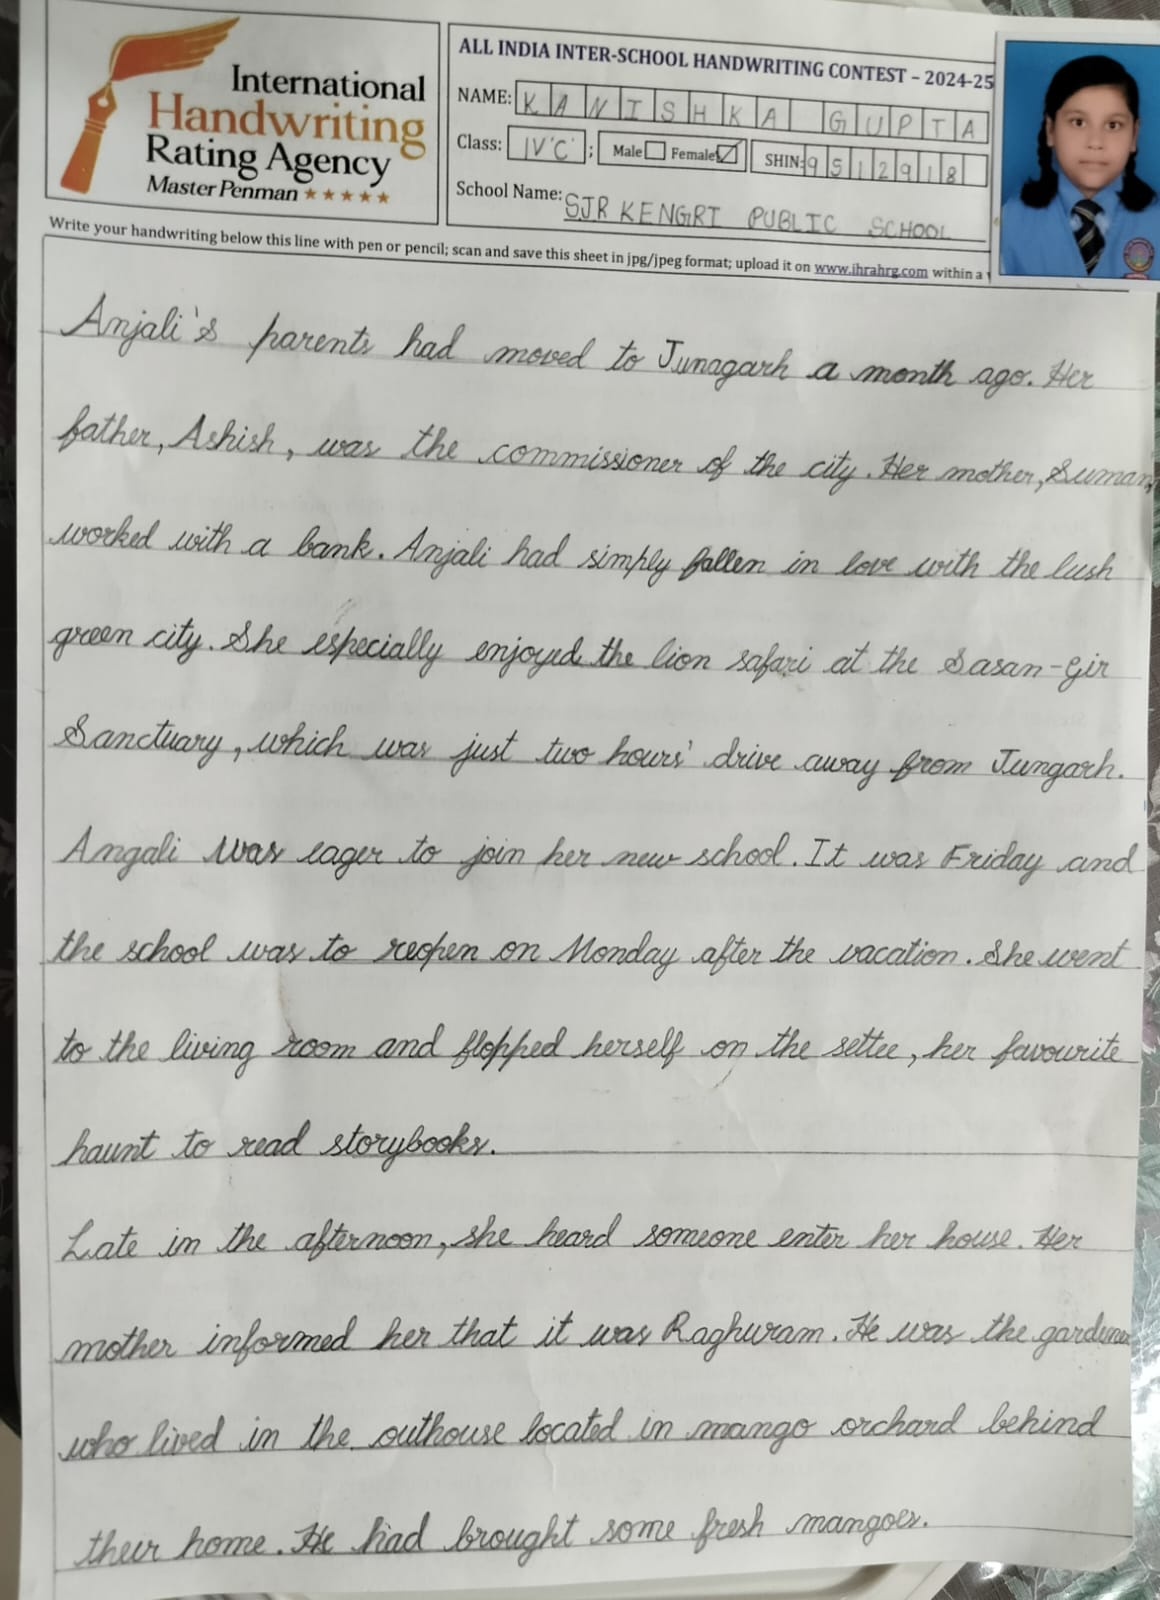 International
Handwriting
Rating Agency
Master Penman ★★★★★
ALL INDIA INTER-SCHOOL HANDWRITING CONTEST – 2024-25
NAME: KANISHKA GUPTA
Class: IV'C' ; Male Female SHIN: 9512918
School Name: SJR KENGRI PUBLIC SCHOOL
Write your handwriting below this line with pen or pencil; scan and save this sheet in jpg/jpeg format; upload it on www.ihrahrg.com within a
Anjali's parents had moved to Junagarh a month ago. Her
father, Ashish, was the commissioner of the city. Her mother, Suman,
worked with a bank. Anjali had simply fallen in love with the lush
green city. She especially enjoyed the lion safari at the Sasan-Gir
Sanctuary, which was just two hours' drive away from Jungarh.
Angali was eager to join her new school. It was Friday and
the school was to reopen on Monday after the vacation. She went
to the living room and flopped herself on the settee, her favourite
haunt to read storybooks.
Late in the afternoon, she heard someone enter her house. Her
mother informed her that it was Raghuram. He was the
who lived in the outhouse located in mango orchard behind
their home. He had brought some fresh mangoes.